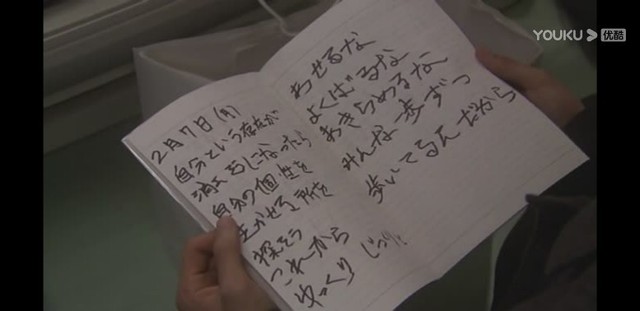 YOUKU 优酷
2月7日(月)
自分という存在が
になったら
自分の個性を
生かせる所を
探そう
これから
ゆっくり じっくり!
あせるな
よくばるな
あきらめるな
みんな一歩ずつ
歩いてるんだから